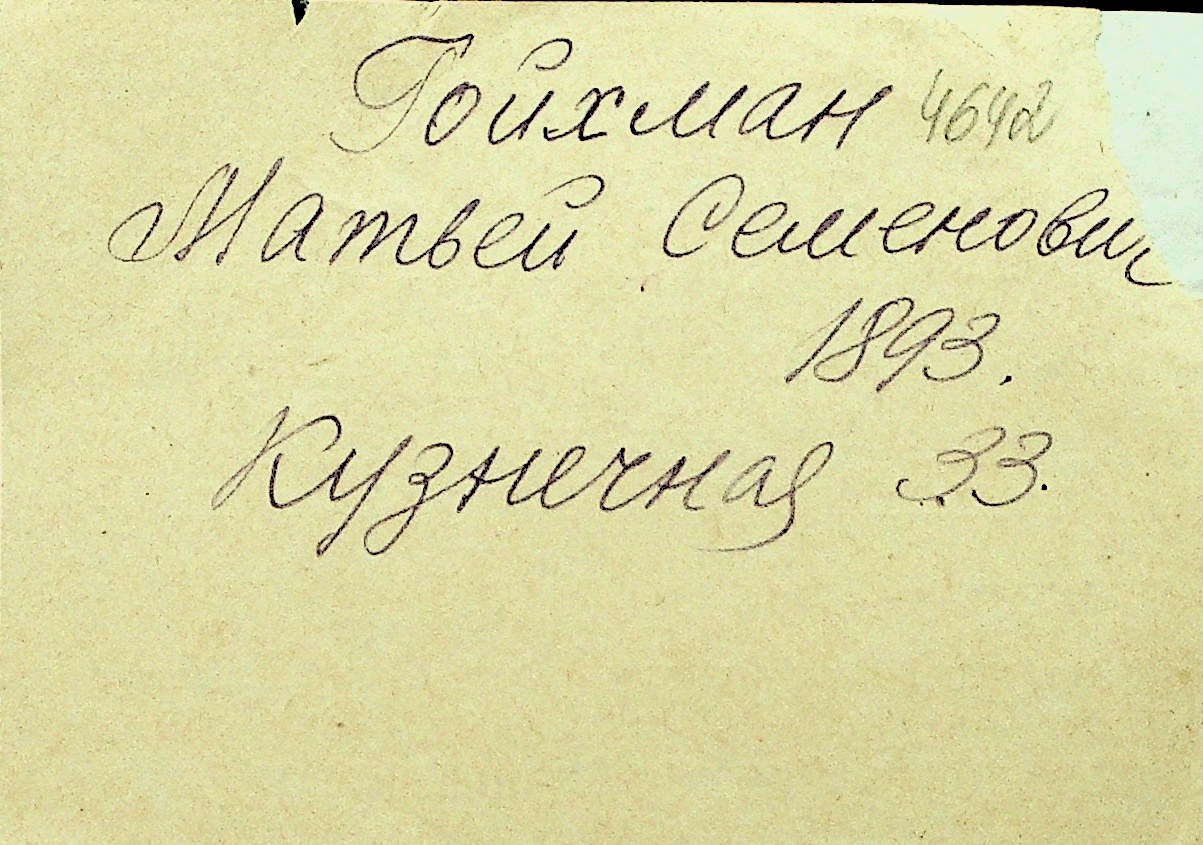 Гойхман 4642
Матвей Семенович
1893.
Кузнечная 33.